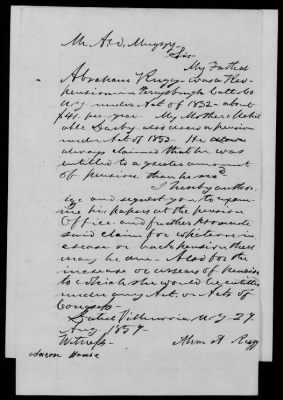 Mr. A. D. Muzzy
Sir
My Father
Abraham Rugg was a Rev.
pensioner in Perrysburgh Catt. Co
N.Y. under Act of 1832 about
$41. per year. My Mother
also drew a pension
under Act of 1853. He
always claimed that he was
entitled to a greater amount
of pension than he recd
I hereby author-
ize and request you to exam-
ine his papers at the pension
Office and further prosecute
said claim for
increase or back pension there
may be due. Also for the
increase or arrears of pension
to which she would be entitled
under any Act. or Acts of
Congress
Dated Villenovia N.Y. 27
Aug 1859
Witness